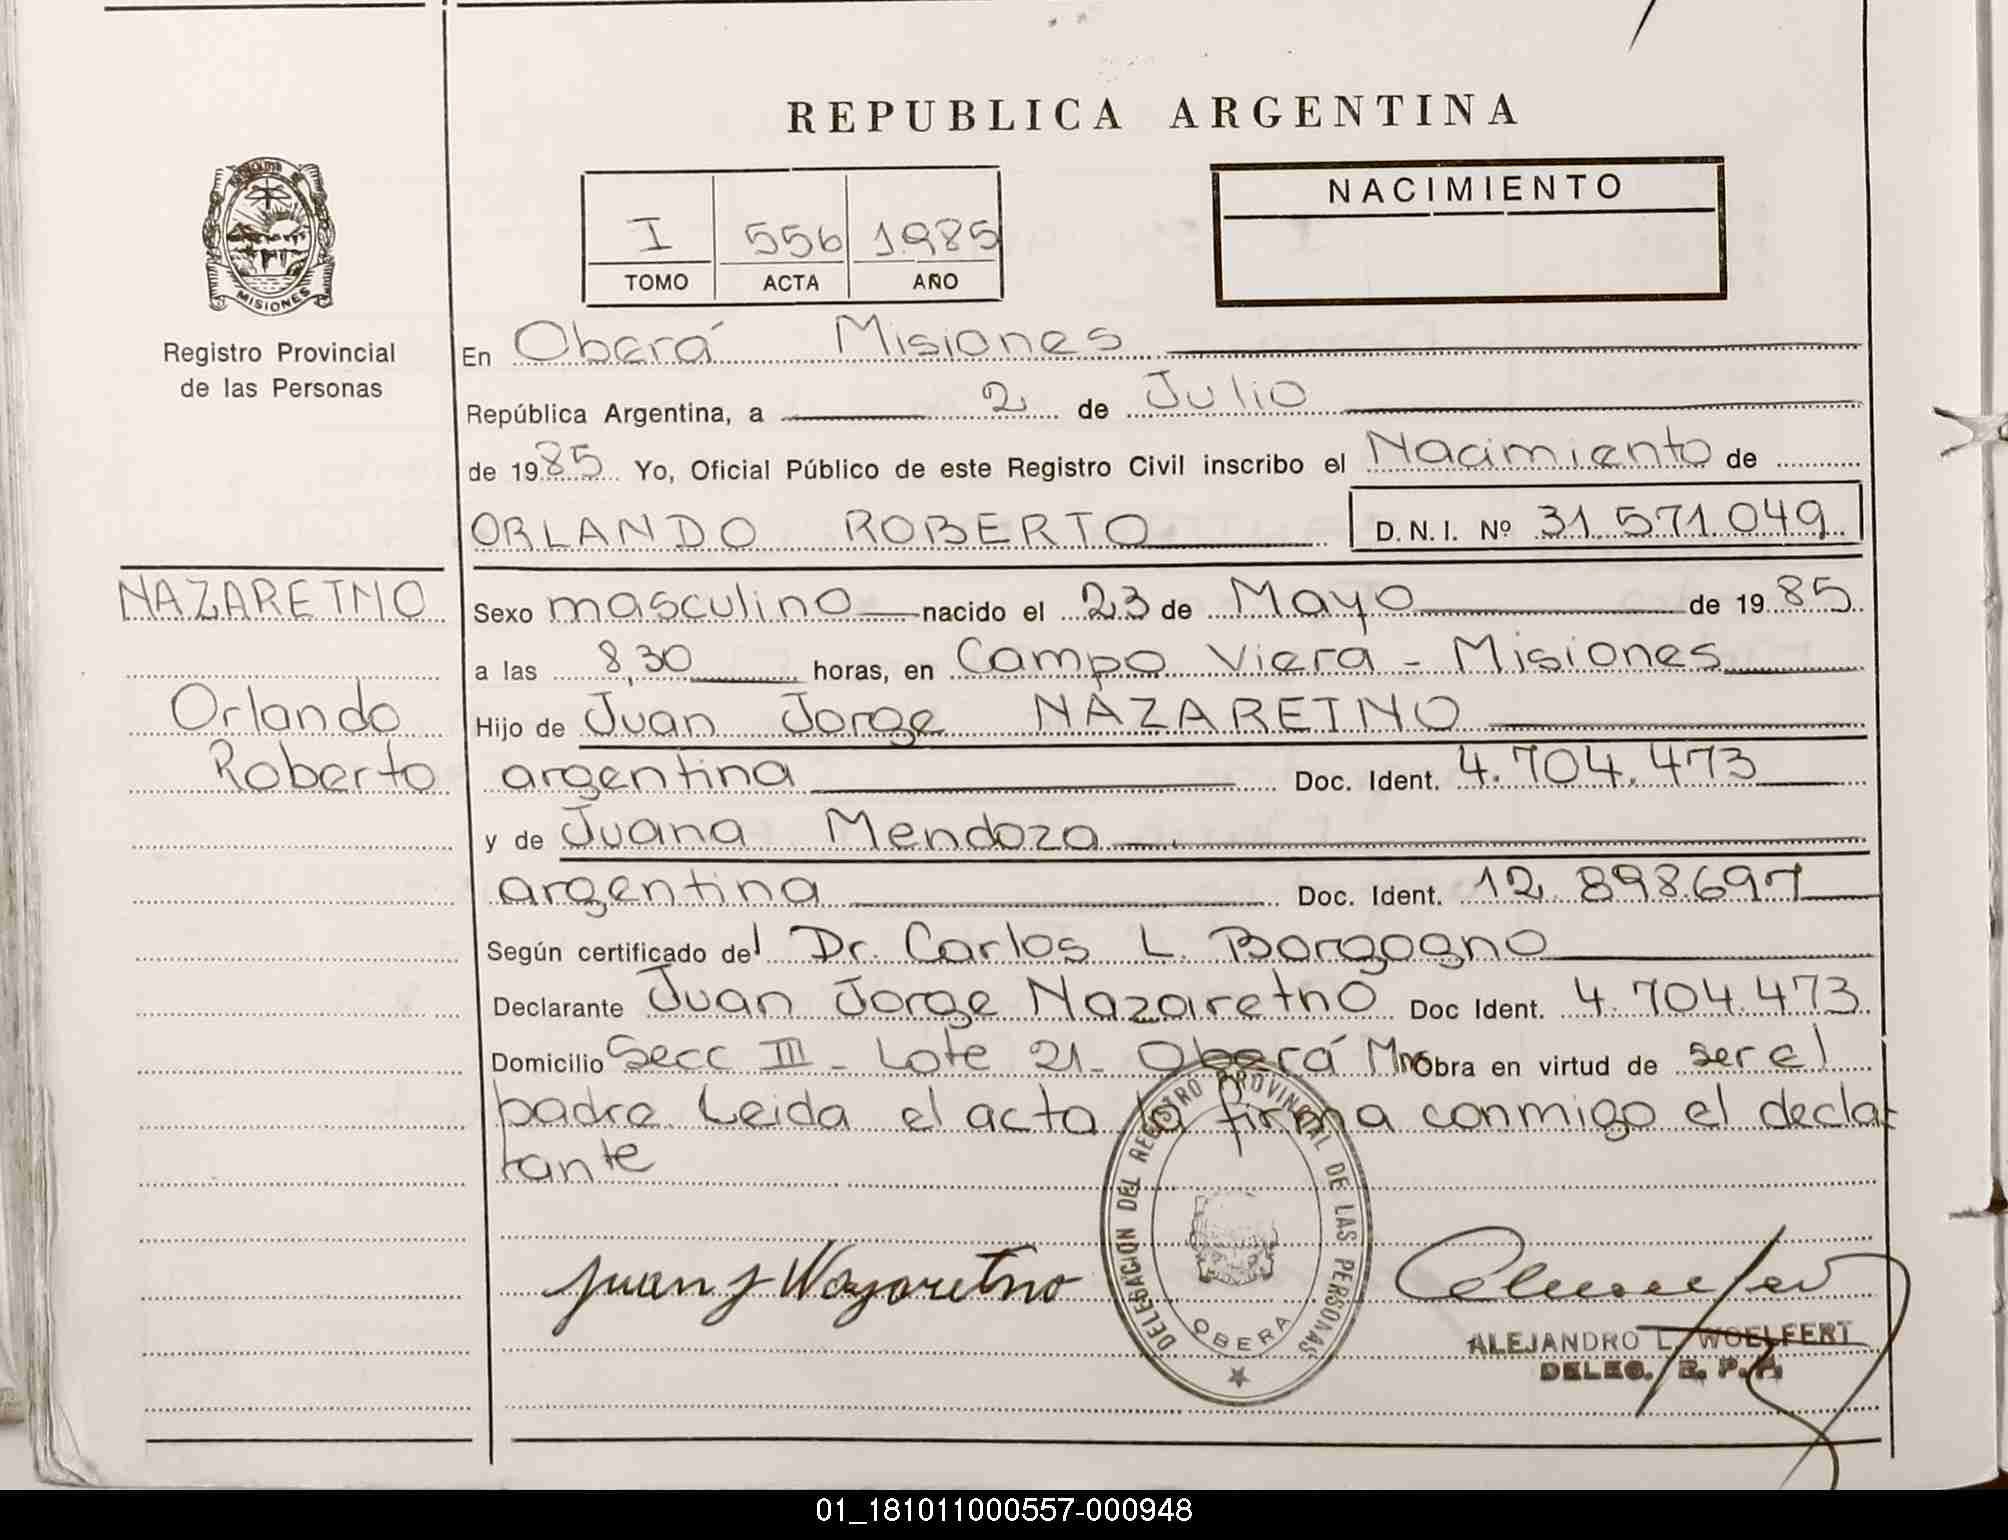 REPUBLICA ARGENTINA
MISIONES
Registro Provincial
de las Personas
I 556 1985
TOMO ACTA AÑO
NACIMIENTO
En Oberá Misiones
República Argentina, a 2 de Julio
de 1985 Yo, Oficial Público de este Registro Civil inscribo el Nacimiento de
ORLANDO ROBERTO D.N.I. Nº 31.571.049
NAZARETNO
Orlando
Roberto
Sexo masculino nacido el 23 de Mayo de 1985
a las 8,30 horas, en Campo Viera - Misiones
Hijo de Juan Jorge NAZARETNO
argentina Doc. Ident. 4.704.473
y de Juana Mendoza
argentina Doc. Ident. 12.898.697
Según certificado del Dr. Carlos L. Borgogno
Declarante Juan Jorge Nazaretno Doc Ident. 4.704.473
Domicilio Secc III - Lote 21 - Oberá Mns Obra en virtud de ser el
padre Leida el acta la firma conmigo el decla
rante
DELEGACION DEL REGISTRO PROVINCIAL DE LAS PERSONAS
OBERA
Juan J Nazaretno
ALEJANDRO L. WOELFERT
DELEG. R. P. P.
01_181011000557-000948